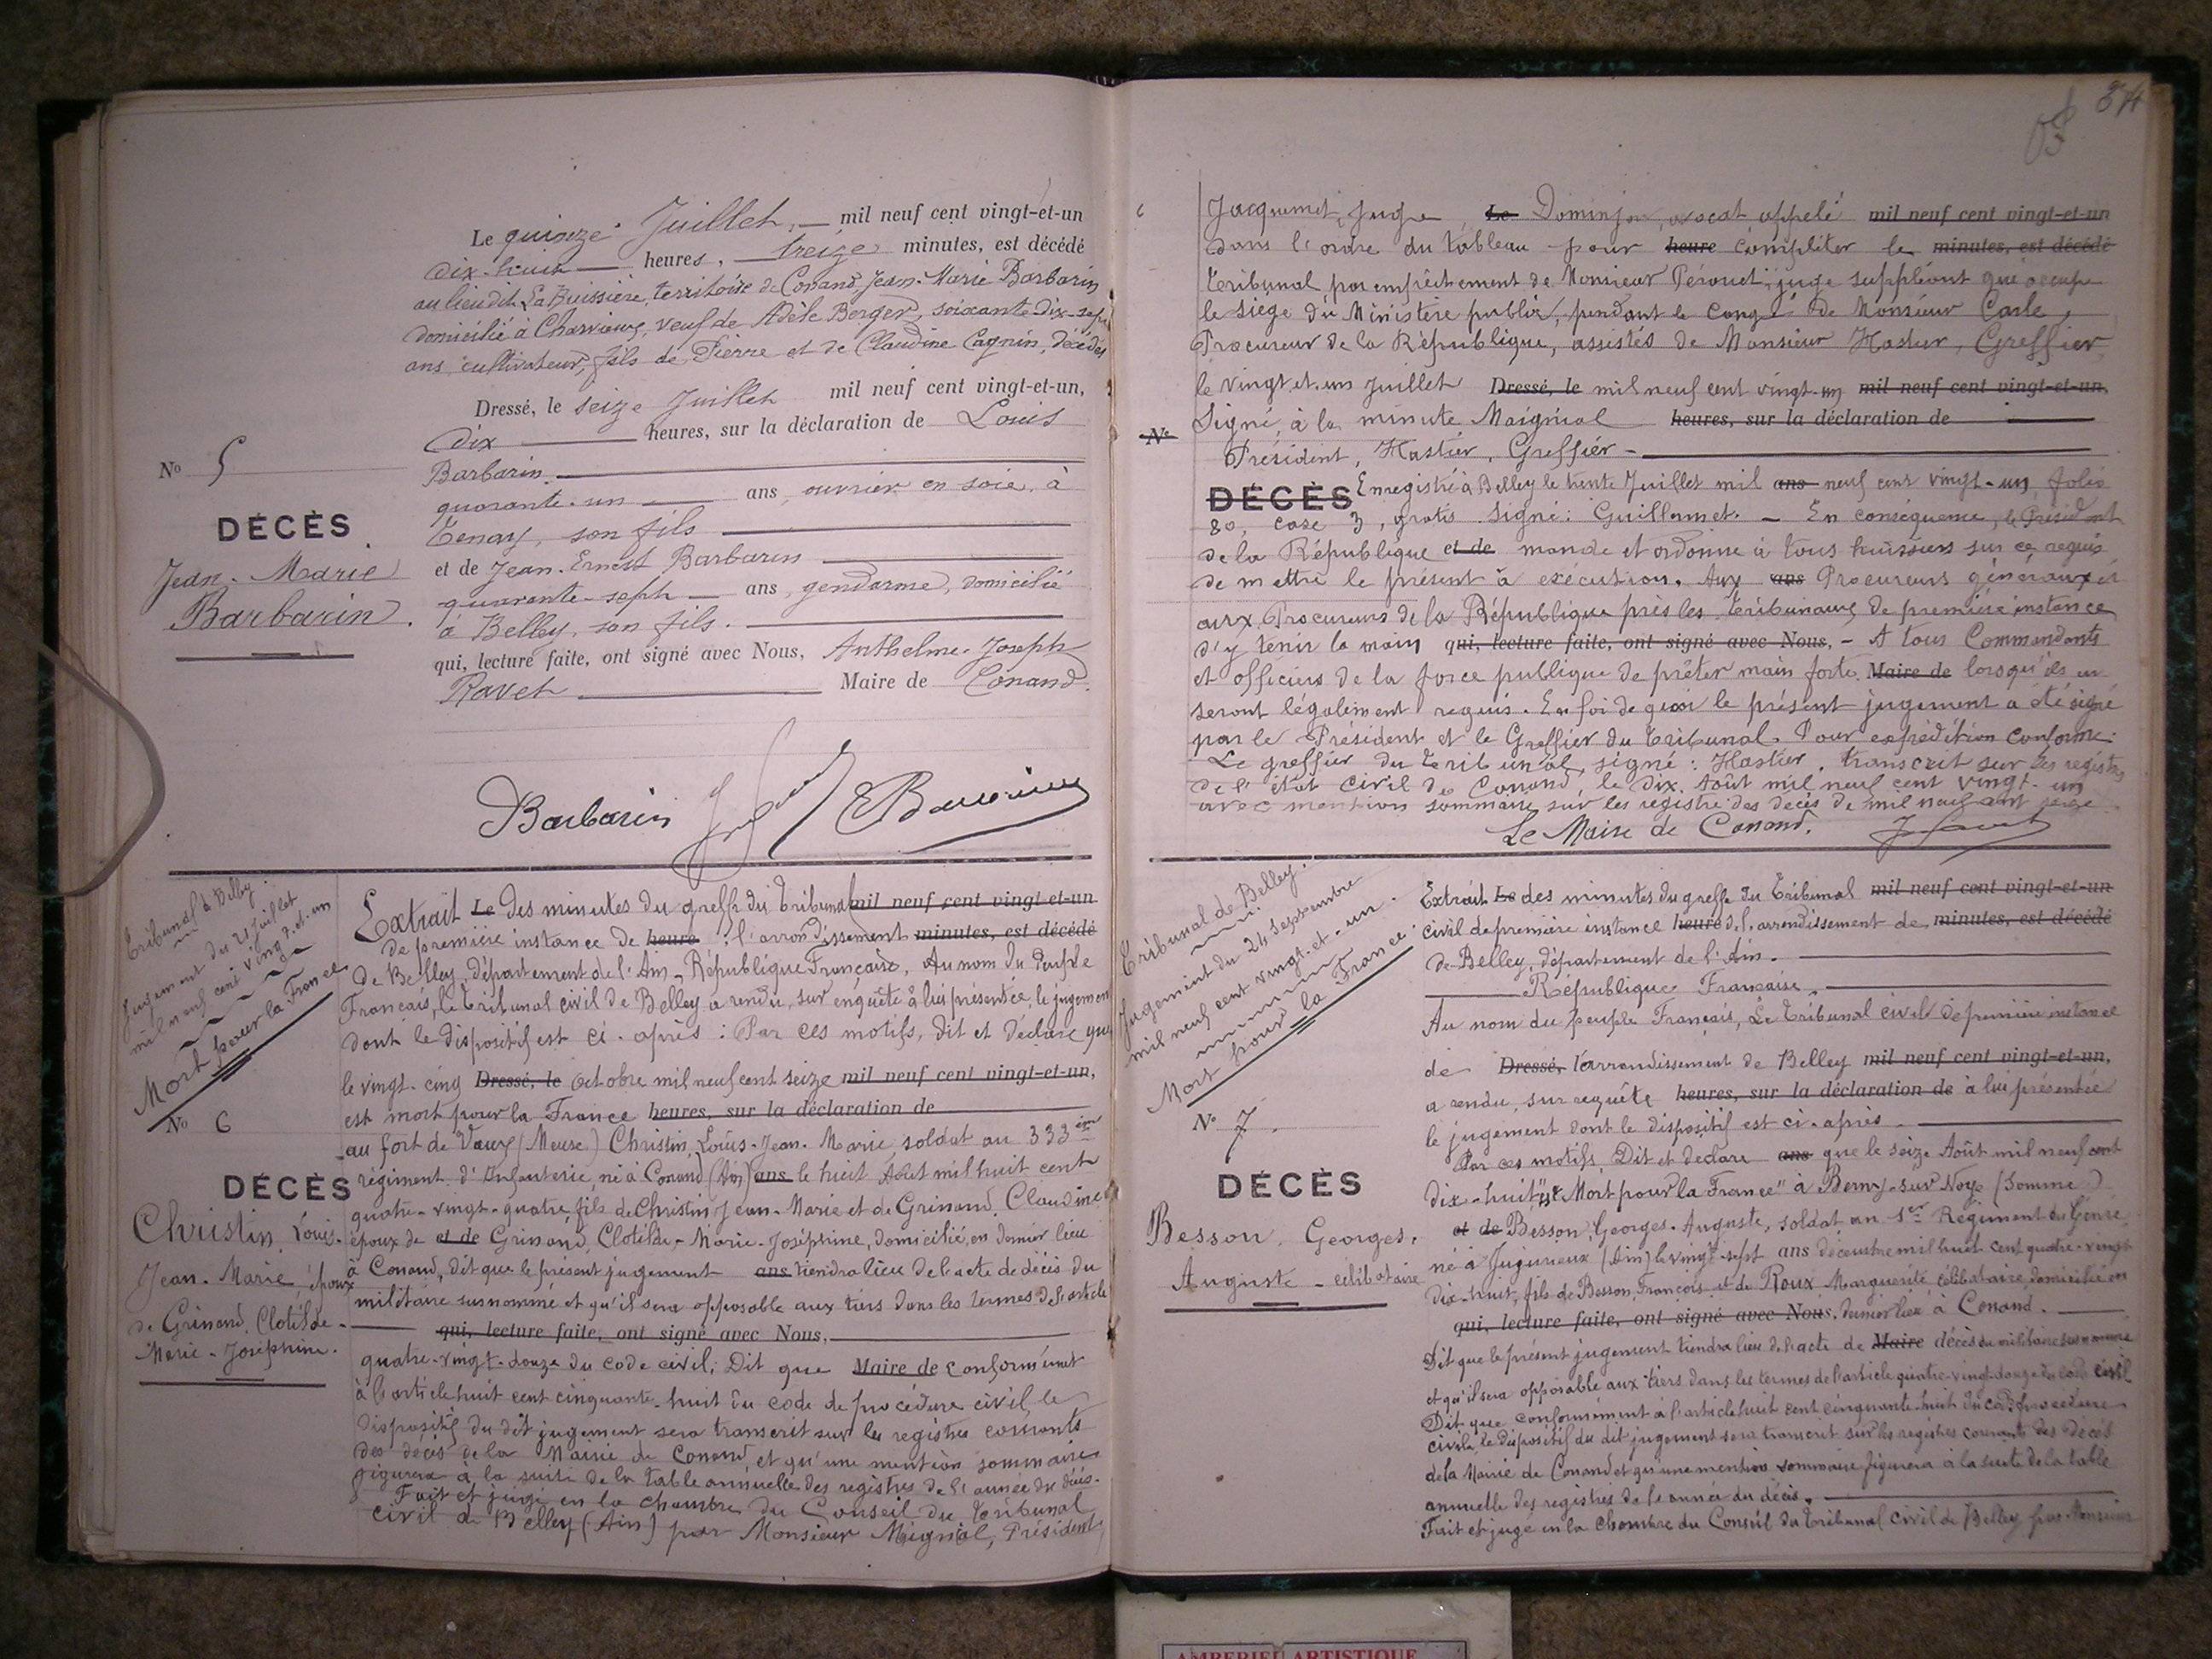 Le quinze Juillet, mil neuf cent vingt-et-un
dix-huit heures, treize minutes, est décédé
au lieu dit La Buissière, territoire de Conand, Jean-Marie Barbarin
domicilié à Charvieux, veuf de Adèle Berger, soixante dix-sept
ans cultivateur, fils de Pierre et de Claudine Cagnin, décédés
Dressé, le seize Juillet mil neuf cent vingt-et-un,
dix heures, sur la déclaration de Louis
Barbarin
quarante-un ans, ouvrier en soie, à
Tenay, son fils
et de Jean-Ernest Barbarin
quarante-sept ans, gendarme, domicilié
à Belley, son fils.
qui, lecture faite, ont signé avec Nous, Anthelme-Joseph
Ravet Maire de Conand.
No 5
DÉCÈS
Jean-Marie
Barbarin.
Barbarin
Tribunal de Belley
Jugement du 21 juillet
mil neuf cent vingt-et-un
Mort pour la France
No 6
DÉCÈS
Christin, Louis-
Jean-Marie, époux
de Grinand, Clotilde-
Marie-Joséphine.
Extrait Le des minutes du greffe du Tribunal mil neuf cent vingt-et-un
de première instance de heure l'arrondissement minutes, est décédé
de Belley, département de l'Ain - République Française, Au nom du Peuple
Français, le Tribunal civil de Belley a rendu, sur enquête à lui présentée, le jugement
dont le dispositif est ci-après : Par ces motifs, dit et déclare que
le vingt-cinq Dressé, le Octobre mil neuf cent seize mil neuf cent vingt-et-un,
est mort pour la France heures, sur la déclaration de
au fort de Vaux (Meuse) Christin, Louis-Jean-Marie, soldat au 333ème
régiment d'Infanterie, né à Conand (Ain) ans le huit Août mil huit cent
quatre-vingt-quatre, fils de Christin Jean-Marie et de Grinand, Claudine
époux de et de Grinand, Clotilde-Marie-Joséphine, domicilié, en dernier lieu
à Conand, dit que le présent jugement ans tiendra lieu de l'acte de décès du
militaire susnommé et qu'il sera opposable aux tiers dans les termes de l'article
qui, lecture faite, ont signé avec Nous,
quatre-vingt-douze du code civil; Dit que Maire de conformément
à l'article huit cent cinquante-huit du code de procédure civil, le
dispositif du dit jugement sera transcrit sur les registres courants
des décès de la Mairie de Conand et qu'une mention sommaire
figurera à la suite de la table annuelle des registres de l'année du décès.
Fait et jugé en la chambre du Conseil du Tribunal
civil de Belley (Ain) par Monsieur Maignial, Président
84
6
Jacquemet, juge, Le Dominjon, avocat appelé mil neuf cent vingt-et-un
dans l'ordre du tableau pour heure compléter le minutes, est décédé
tribunal par empêchement de Monsieur Pérouet, juge suppléant qui occupe
le siège du Ministère public, pendant le congé de Monsieur Carle,
Procureur de la République, assistés de Monsieur Hastier, Greffier
le vingt-et-un Juillet Dressé, le mil neuf cent vingt-un mil neuf cent vingt-et-un,
Signé, à la minute Maignial heures, sur la déclaration de
No
Président, Hastier, Greffier
DÉCÈS Enregistré à Belley le trente Juillet mil ans neuf cent vingt-un, folio
80, case 3, gratis. Signé : Guillemet. - En conséquence, le Président
de la République et de mande et ordonne à tous huissiers sur ce requis
de mettre le présent à exécution. Aux ans Procureurs généraux et
aux Procureurs de la République près les Tribunaux de première instance
d'y tenir la main qui, lecture faite, ont signé avec Nous, - A tous Commandants
et officiers de la force publique de prêter main forte Maire de lorsqu'ils en
seront légalement requis. En foi de quoi le présent jugement a été signé
par le Président et le Greffier du Tribunal. Pour expédition conforme.
Le greffier du Tribunal, signé : Hastier. transcrit sur les registres
de l'état civil de Conand, le dix Août mil neuf cent vingt-un
avec mention sommaire sur les registre des décès de mil neuf cent seize
Le Maire de Conand.
Tribunal de Belley.
Jugement du 24 Septembre
mil neuf cent vingt-et-un.
Mort pour la France.
No 7.
DÉCÈS
Besson, Georges,
Auguste - célibataire
Extrait Le des minutes du greffe du Tribunal mil neuf cent vingt-et-un
civil de première instance heure de l'arrondissement de minutes, est décédé
de Belley, département de l'Ain.
République Française.
Au nom du peuple Français, Le Tribunal civil de première instance
de Dressé, l'arrondissement de Belley mil neuf cent vingt-et-un,
a rendu, sur requête heures, sur la déclaration de à lui présentée
le jugement dont le dispositif est ci-après
Par ces motifs, Dit et déclare ans que le seize Août mil neuf cent
dix-huit est "Mort pour la France" à Berny-sur-Noye (Somme)
et de Besson, Georges-Auguste, soldat au 1er Régiment du Génie
né à Jujurieux (Ain) le vingt-sept ans décembre mil huit cent quatre-vingt
dix-huit, fils de Besson, François et de Roux Marguerite, célibataire, domicilié en
qui, lecture faite, ont signé avec Nous. dernier lieu à Conand.
Dit que le présent jugement tiendra lieu de l'acte de Maire décès du militaire susnommé
et qu'il sera opposable aux tiers dans les termes de l'article quatre-vingt-douze du code civil
Dit que conformément à l'article huit cent cinquante-huit du code de procédure
civile, le dispositif du dit jugement sera transcrit sur les registres courants des décès
de la Mairie de Conand et qu'une mention sommaire figurera à la suite de la table
annuelle des registres de l'année du décès.
Fait et jugé en la Chambre du Conseil du Tribunal civil de Belley par Monsieur
AMBERIEU ARTISTIQUE